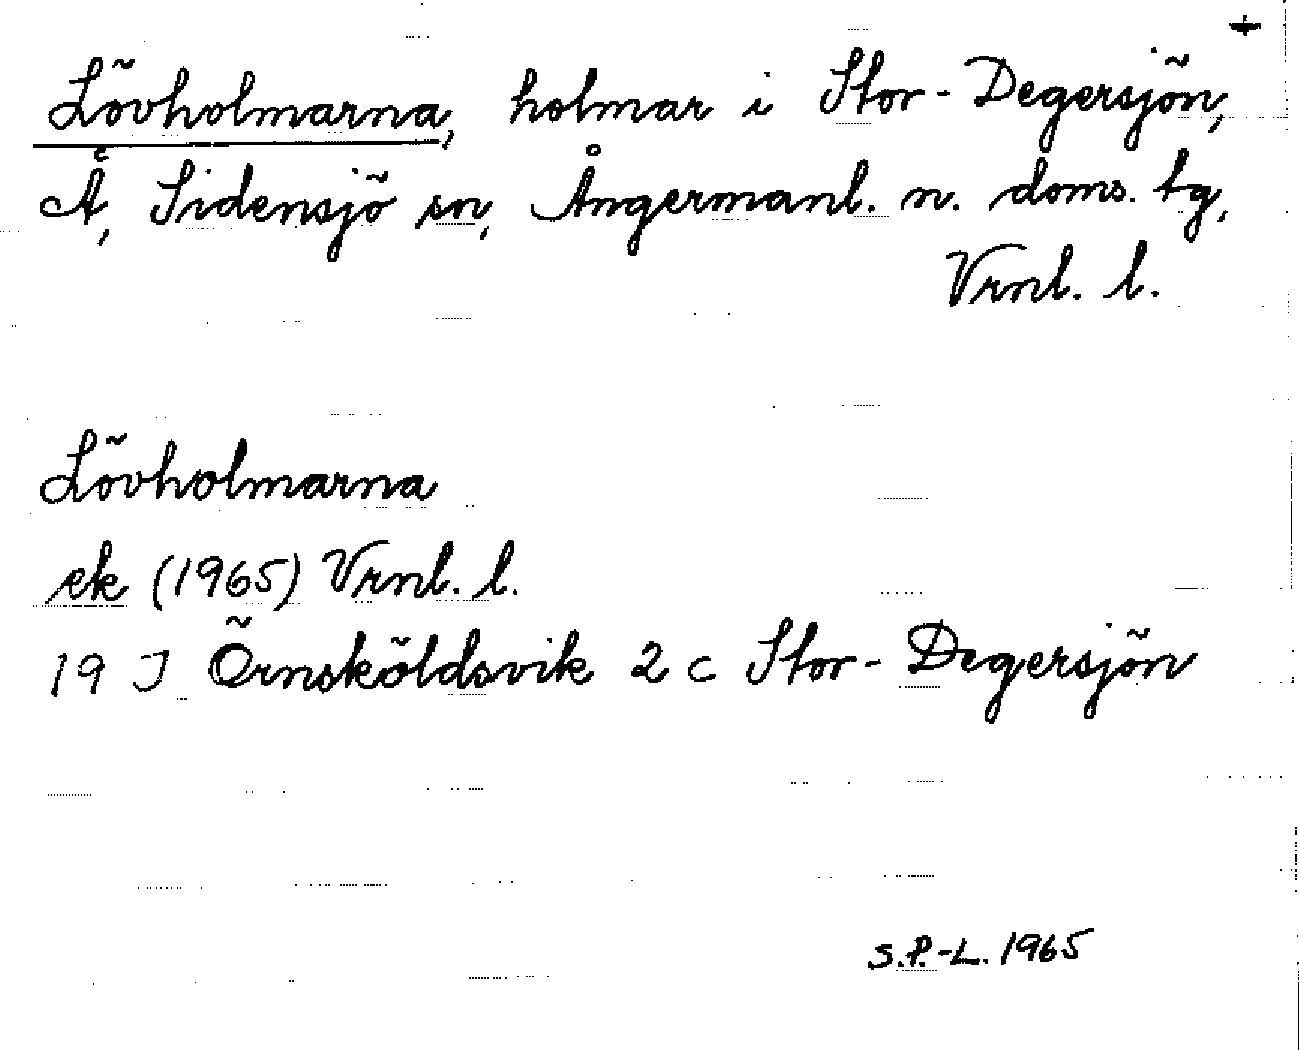 +
Lövholmarna, holmar i Stor-Degersjön,
Å, Sidensjö sn, Ångermanl. n. doms. tg,
Vrnl. l.
Lövholmarna
ek (1965) Vrnl. l.
19 J Örnsköldsvik 2 c Stor-Degersjön
S.P.-L. 1965